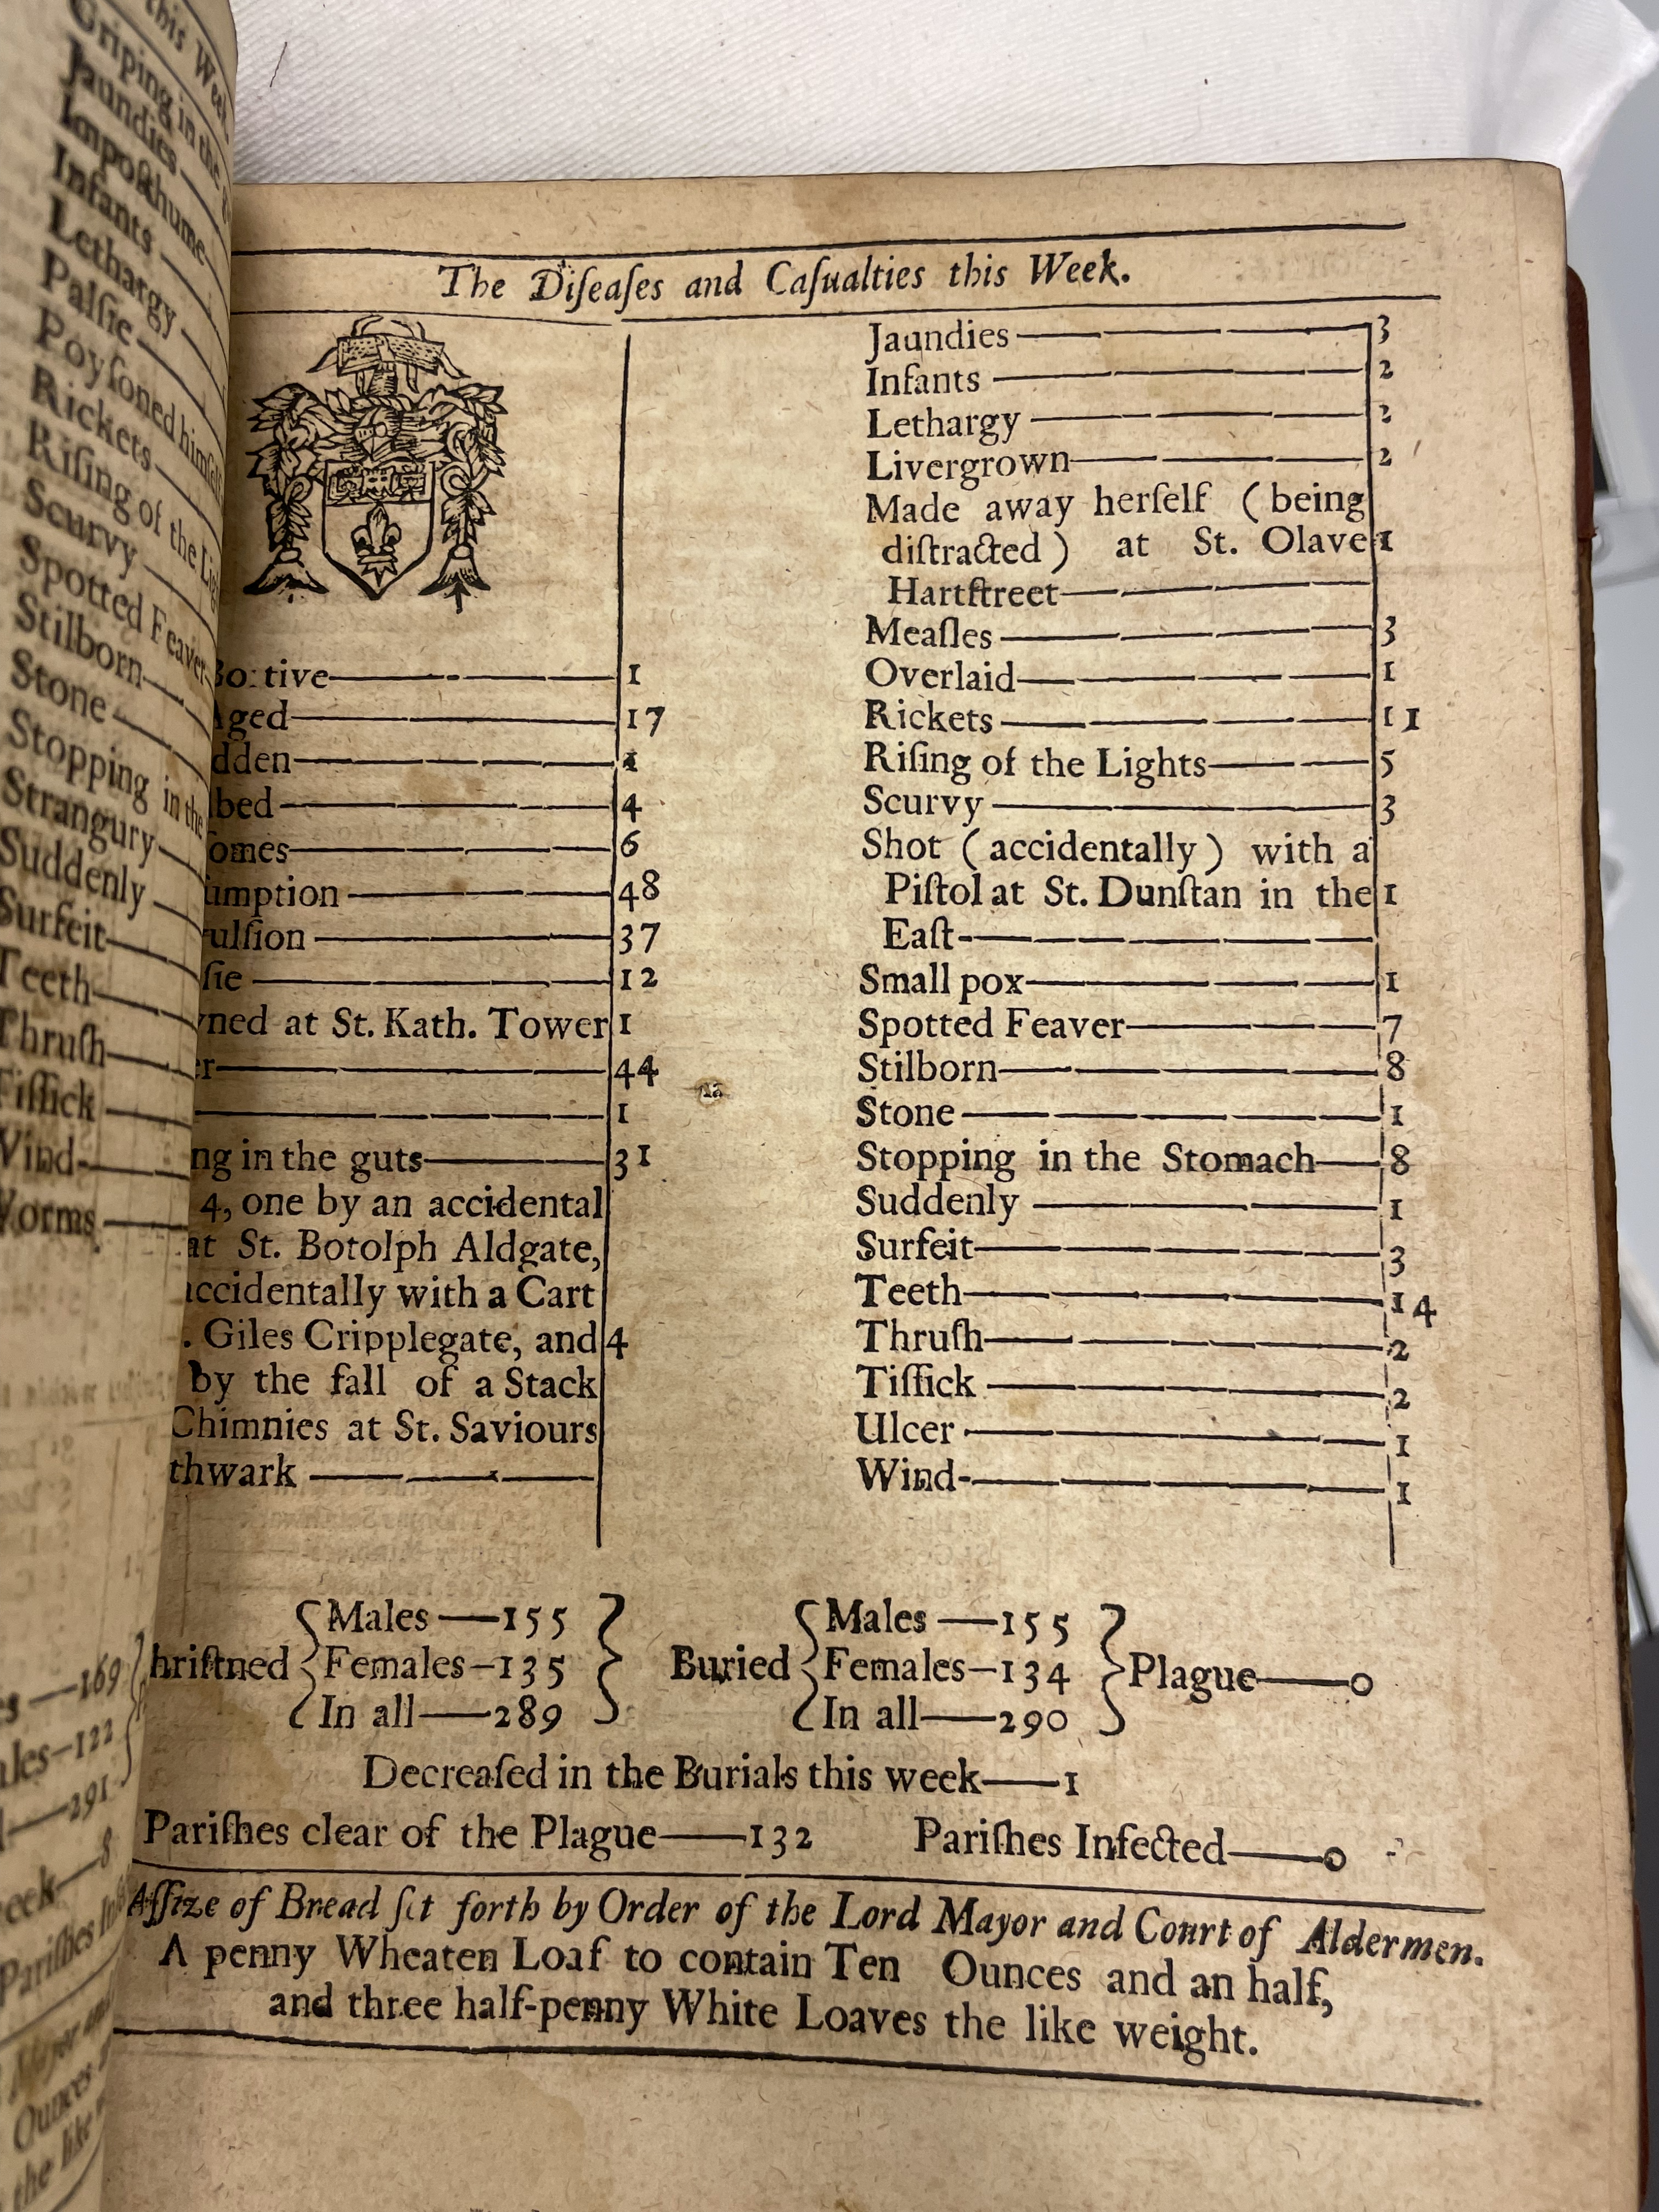 this Week
Griping in the
Jaundies
Imposthume
Infants
Lethargy
Palsie
Poysoned himself
Rickets
Rising of the Lig
Scurvy
Spotted Feaver
Stilborn
Stone
Stopping in the
Strangury
Suddenly
Surfeit
Teeth
Thrush
Tissick
Wind
Worms
—169
ales—122
—291
eek—8
Parishes In
Mayor an
Ounces
the like
The Diſeaſes and Caſualties this Week.
Bo:tive 1
Aged 17
dden 1
bed 4
omes 6
umption 48
ulſion 37
ſie 12
wned at St. Kath. Tower 1
er 44
1
ng in the guts 31
4, one by an accidental
at St. Botolph Aldgate,
accidentally with a Cart
. Giles Cripplegate, and 4
by the fall of a Stack
Chimnies at St. Saviours
thwark
Jaundies 3
Infants 2
Lethargy 2
Livergrown 2
Made away herſelf (being
diſtracted) at St. Olave 1
Hartſtreet
Meaſles 3
Overlaid 1
Rickets 11
Riſing of the Lights 5
Scurvy 3
Shot (accidentally) with a
Piſtol at St. Dunſtan in the 1
Eaſt
Small pox 1
Spotted Feaver 7
Stilborn 8
Stone 1
Stopping in the Stomach 8
Suddenly 1
Surfeit 3
Teeth 14
Thruſh 2
Tiſſick 2
Ulcer 1
Wind 1
Males—155 Males—155
hriſtned Females—135 Buried Females—134 Plague—0
In all—289 In all—290
Decreaſed in the Burials this week—1
Pariſhes clear of the Plague—132 Pariſhes Infected—0
Aſſize of Bread ſet forth by Order of the Lord Mayor and Court of Aldermen.
A penny Wheaten Loaf to contain Ten Ounces and an half,
and three half-penny White Loaves the like weight.